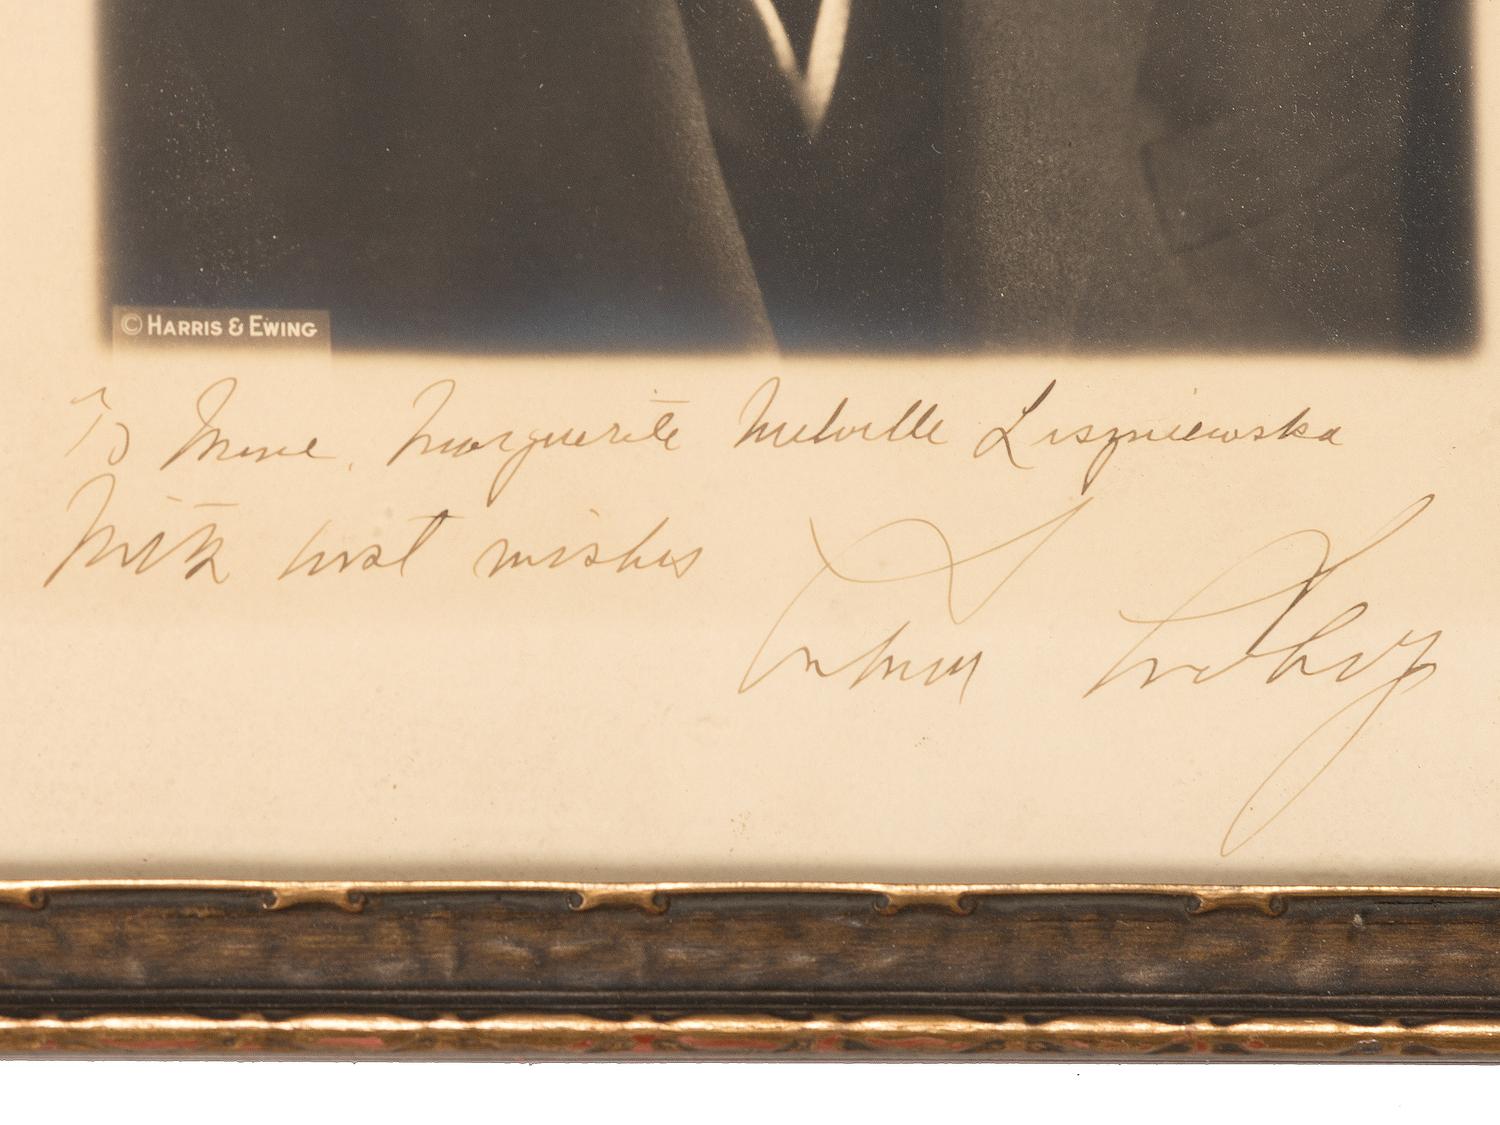 © HARRIS & EWING
To Mme. Marguerite Melville Liszniewska
With best wishes